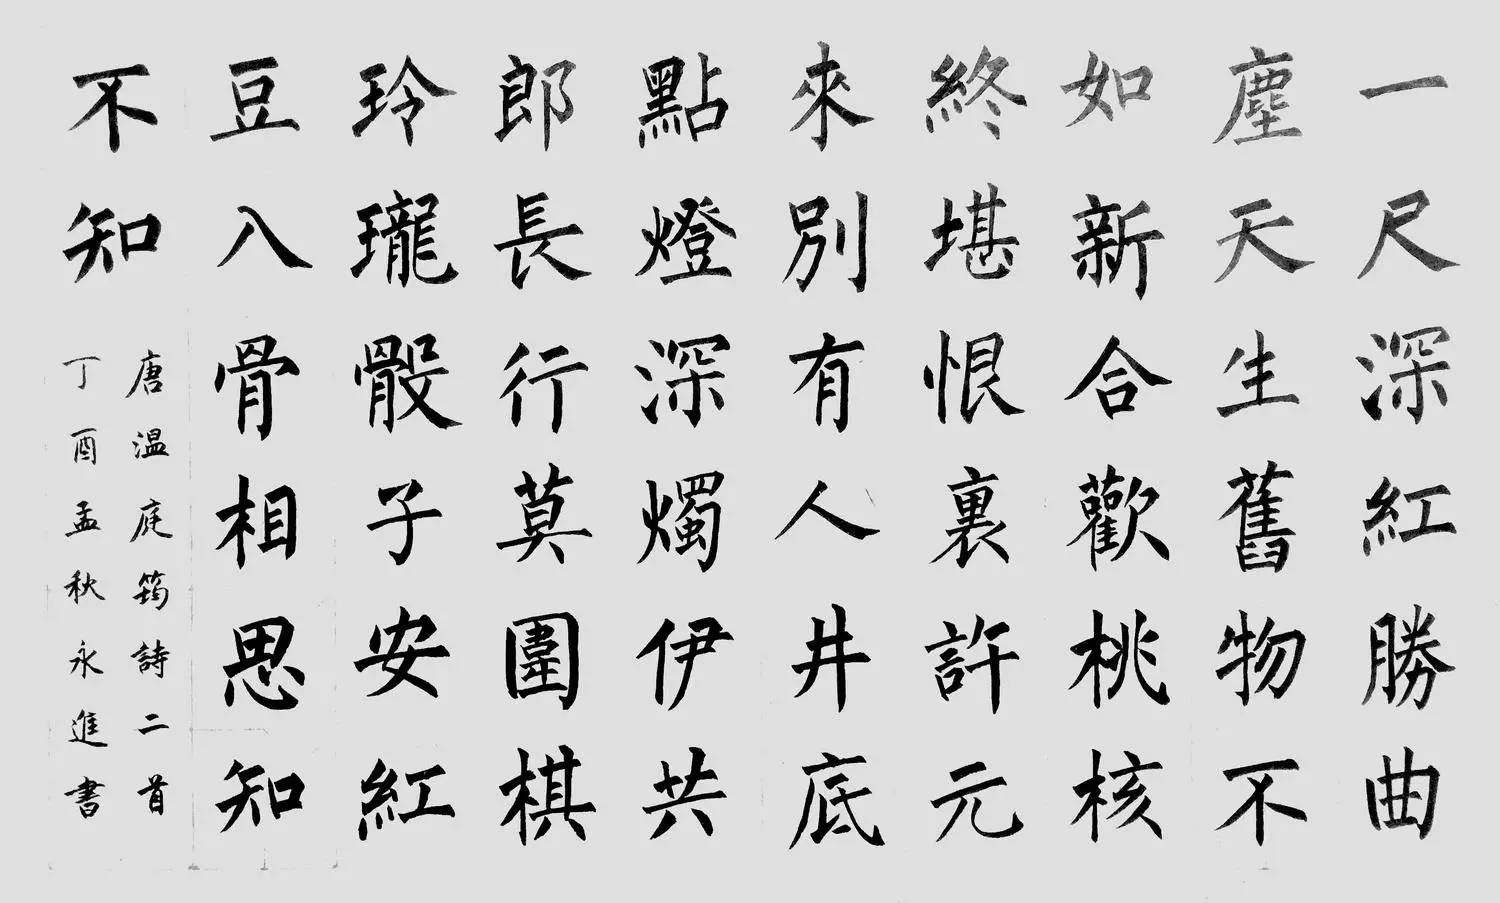 一尺深紅勝曲
塵天生舊物不
如新合歡桃核
終堪恨裏許元
來別有人井底
點燈深燭伊共
郎長行莫圍棋
玲瓏骰子安紅
豆入骨相思知
不知
唐温庭筠詩二首
丁酉孟秋永進書